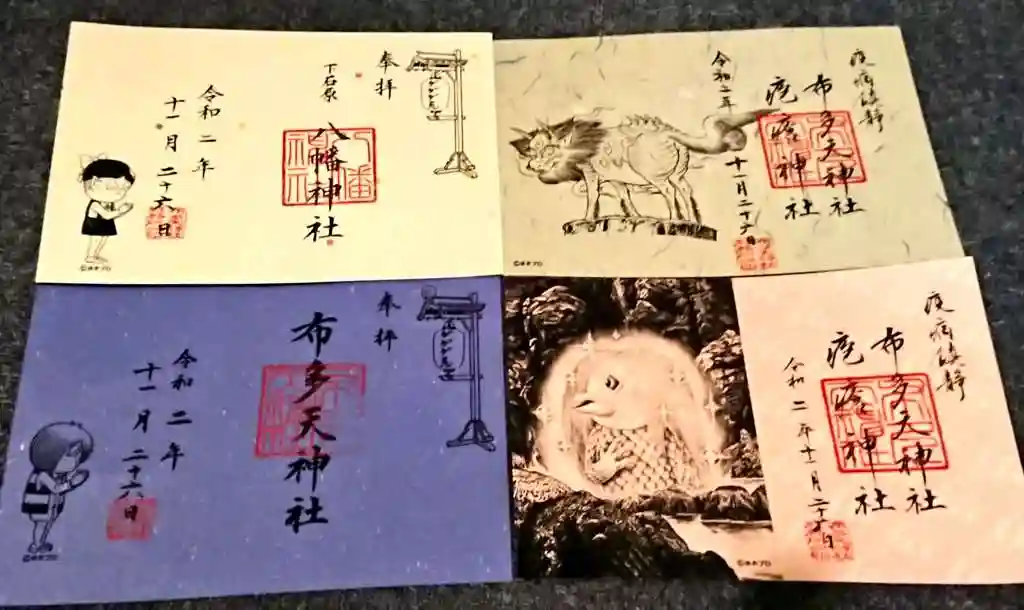 奉拝
下石原
八幡神社
令和二年
十一月二十六日
©水木プロ
疫病鎮静
布多天神社
疱瘡神社
令和二年
十一月二十六日
©水木プロ
奉拝
布多天神社
令和二年
十一月二十六日
©水木プロ
疫病鎮静
布多天神社
疱瘡神社
令和二年十一月二十六日
©水木プロ